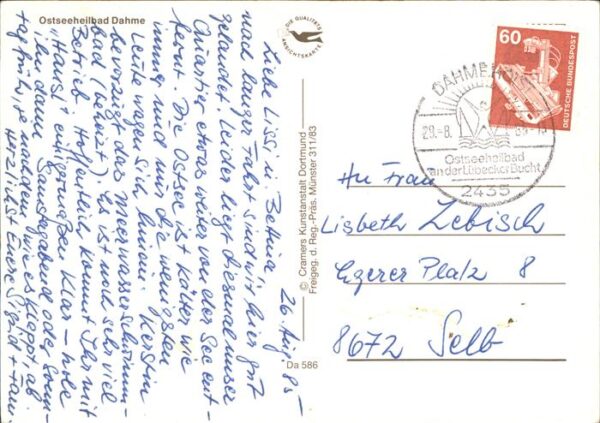 Ostseeheilbad Dahme
DIE QUALITÄTS
ANSICHTSKARTE
26. Aug. 85
Liebe Lissi u. Bettina,
nach langer Fahrt sind wir hier gut
gelandet. Leider liegt diesmal unser
Quartier etwas weiter von der See ent-
fernt. Die Ostsee ist kälter wie
immer und nur die wenigsten
Leute wagen sich hinein. Kerstin
bevorzugt das Meerwasserschwimm-
bad (beheizt). Es ist noch sehr viel
Betrieb. Hoffentlich kommt Ihr mit
"Hansi" einigermaßen klar – hole
ihn dann Samstagabend oder Sonn-
tag früh, je nachdem wie es klappt, ab.
Herzlichst Eure Sigrid + Fam.
© Cramers Kunstanstalt Dortmund
Freigeg. d. Reg.-Präs. Münster 311/83
Da 586
60
DEUTSCHE BUNDESPOST
DAHME, HOLST
29.-8.
Ostseeheilbad
an der Lübecker Bucht
2435
An Frau
Lisbeth Zebisch
Egerer Platz 8
8672 Selb